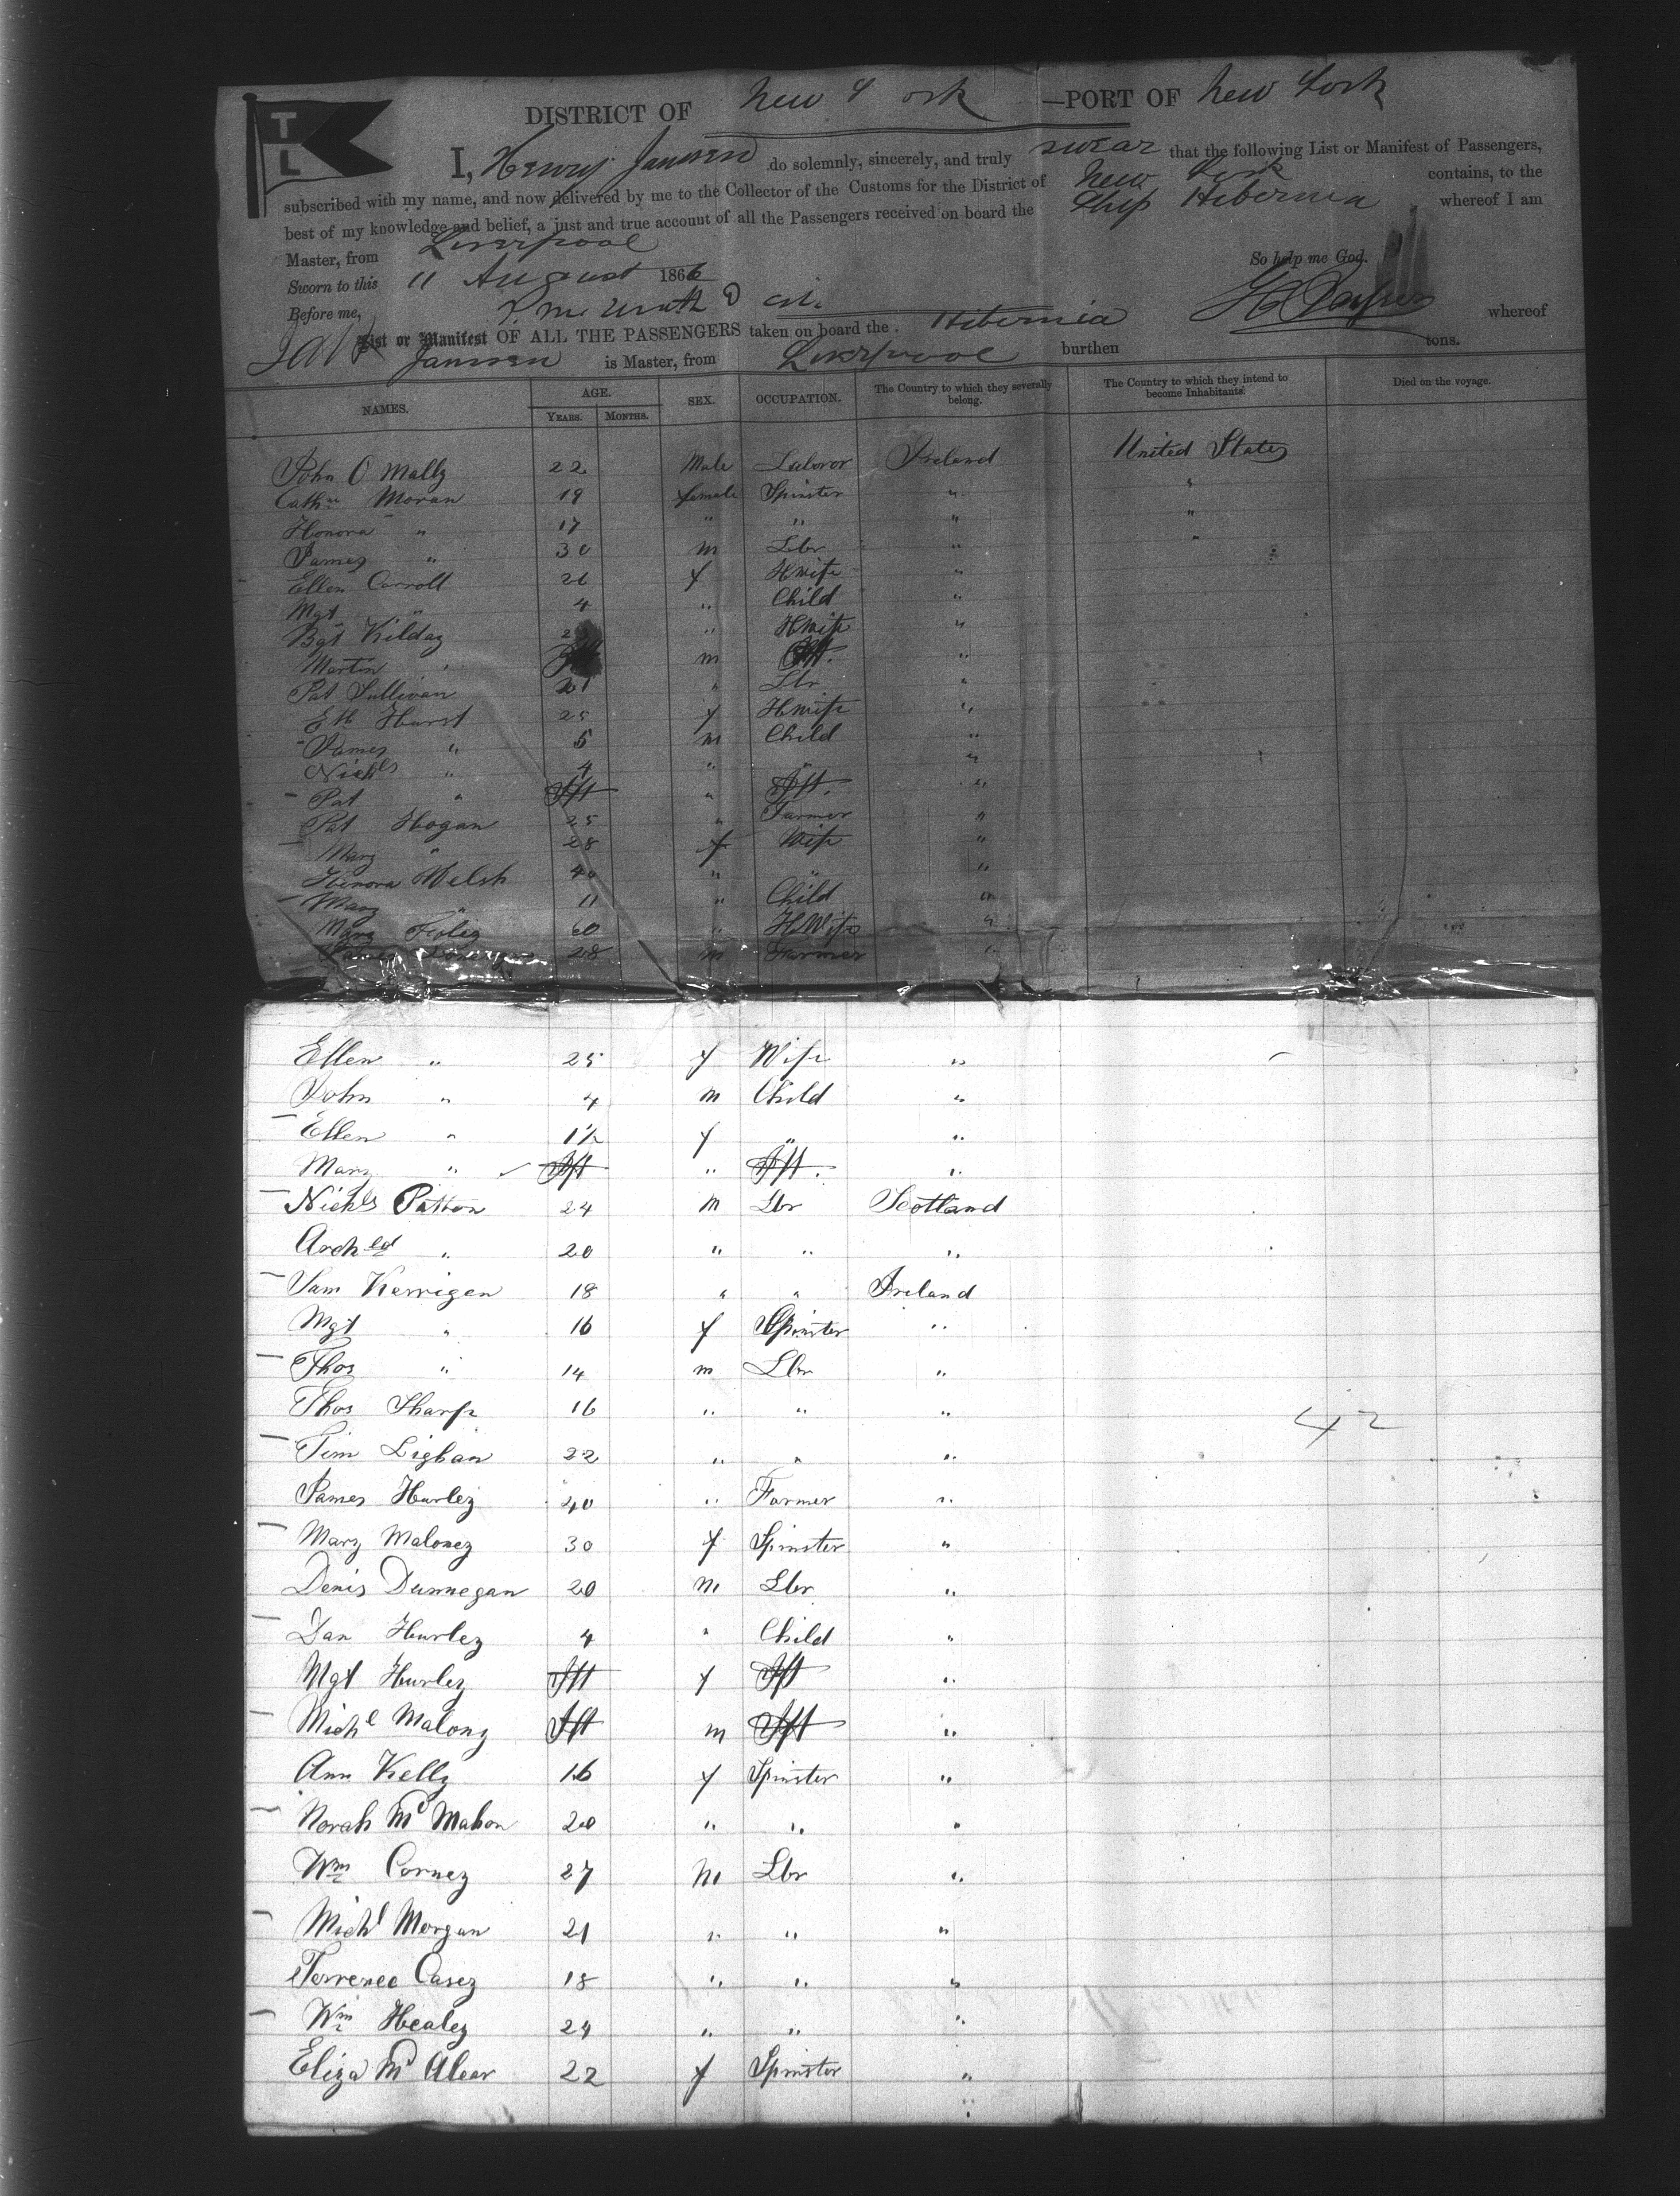 T
L
DISTRICT OF New York —PORT OF New York
I, Henry Jansen do solemnly, sincerely, and truly swear that the following List or Manifest of Passengers,
subscribed with my name, and now delivered by me to the Collector of the Customs for the District of New York contains, to the
best of my knowledge and belief, a just and true account of all the Passengers received on board the Ship Hibernia whereof I am
Master, from Liverpool
So help me God.
Sworn to this 11 August 1866
Before me,
List or Manifest OF ALL THE PASSENGERS taken on board the Hibernia whereof
Jansen is Master, from Liverpool burthen tons.
NAMES. AGE. YEARS. MONTHS. SEX. OCCUPATION. The Country to which they severally belong. The Country to which they intend to become Inhabitants. Died on the voyage.
John O Mally 22 Male Labror Ireland United States
Cathn Moran 19 female Spinster " "
Honora " 17 " " " "
James " 30 m Lbr " "
Ellen Carroll 26 f Hwife "
Mgt " 4 " Child "
Bgt Kilday " Hwife "
Martin " m Ift. "
Pat Sullivan 21 " Lbr "
Eth Hurst 25 f Hwife "
James " 5 m Child "
Nichls " 4 " " "
Pat " Ift " Ift. "
Pat Hogan 25 " Farmer "
Mary " 28 f Wife "
Honora Welsh 40 " " "
Mary " 11 " Child "
Mary Foley 60 " HWife "
James 28 m Farmer "
Ellen " 25 f Wife "
John " 4 m Child "
Ellen " 1½ f " "
Mary " Ift " Ift. "
Nichls Patton 24 m Lbr Scotland
Archld " 20 " " "
Sam Kerrigen 18 " " Ireland
Mgt " 16 f Spinster "
Thos " 14 m Lbr "
Thos Sharp 16 " " "
42
Tim Lighan 22 " " "
James Hurley 40 " Farmer "
Mary Maloney 30 f Spinster "
Denis Dunnegan 20 m Lbr "
Dan Hurley 4 " Child "
Mgt Hurley Ift f Ift "
Michl Malony Ift m Ift "
Ann Kelly 16 f Spinster "
Norah Mc Mahon 20 " " "
Wm Corney 27 m Lbr "
Michl Morgan 21 " " "
Terrence Casey 18 " " "
Wm Healey 24 " " "
Eliza Mc Alear 22 f Spinster "